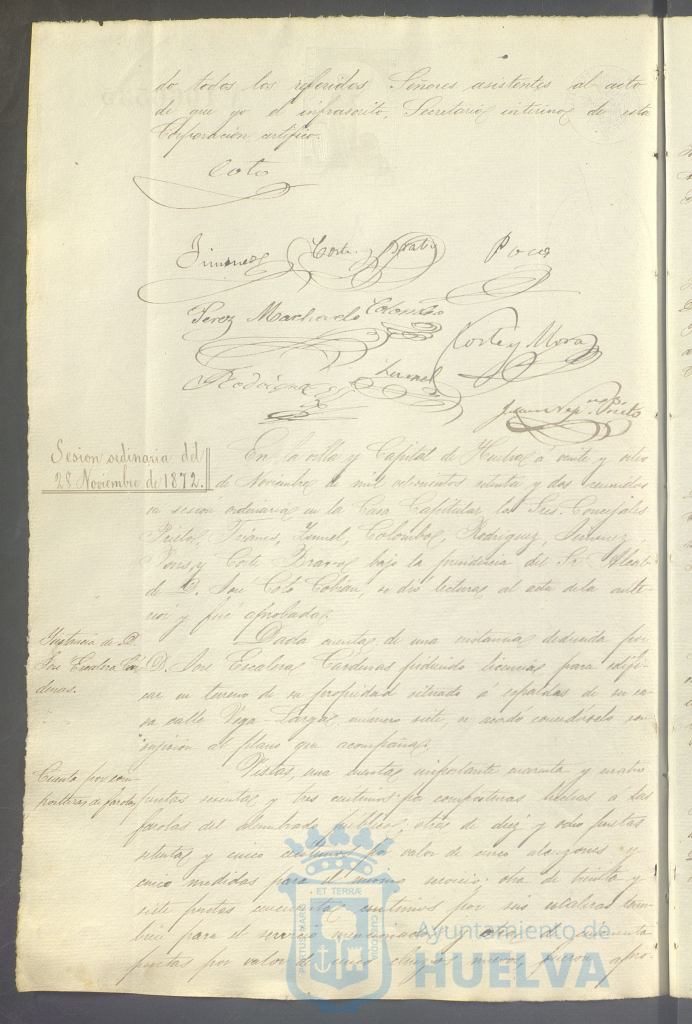 do todos los referidos Señores asistentes al acto
de que yo el infrascrito, Secretario interino de esta
Corporacion certifico.
Coto
Jimenez Corte y Bravo Pons
Perez Machado Colombo
Corte y Mora
Rodriguez
Juan Nep.no Prieto
Sesion ordinaria del
28 Noviembre de 1872.
En la villa y Capital de Huelva á veinte y ocho
de Noviembre de mil ochocientos setenta y dos reunidos
en sesion ordinaria en la Casa Capitular los Sres. Concejales
Prieto, Colombo, Rodriguez, Jimenez,
Pons, y Corte Bravo bajo la presidencia del Sr. Alcal-
de D. José Coto Cobian, se dió lectura al acta de la ante-
rior y fué aprobada.
Instancia de D.
José Escalera Cár-
denas.
Dada cuenta de una instancia deducida por
D. José Escalera Cárdenas pidiendo licencia para edifi-
car un terreno de su propiedad situado á espaldas de su ca-
sa calle Vega-Larga número siete, se acordó concedérsela con
sujecion al plano que acompaña.
Cuenta por com-
posturas de farolas
Vistas, una cuenta importante cuarenta y cuatro
pesetas sesenta y tres centimos por composturas hechas á las
farolas del alumbrado público; otra de diez y ocho pesetas
setenta y cinco centimos por valor de cinco alcuzones y
cinco medidas para el mismo servicio; otra de treinta y
siete pesetas cincuenta centimos por seis escaleras tam-
bien para el servicio mencionado y otra de cincuenta
pesetas por valor de cinco nuevos fueron apro-
PORTUS MARIS ET TERRÆ CUSTODIA
Ayuntamiento de
HUELVA